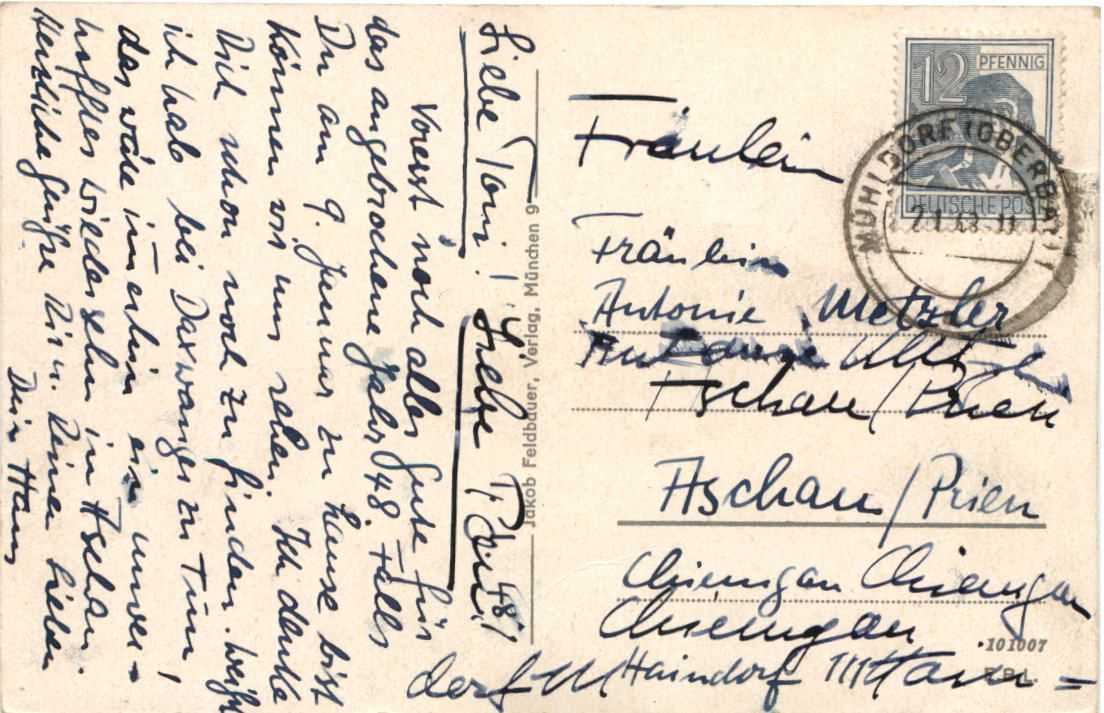 Liebe Toni! Liebe Toni!
Vorerst noch alles Gute für
das angebrochene Jahr 48. Falls
Du am 9. Januar zu Hause bist
können wir uns sehen. Ich denke
Dich schon noch zu finden.
ich hab bei Daxwanger zu tun,
das wäre immerhin ein unver-
hofftes Wiedersehn in Aschau.
Herzliche Grüße Dir u. Deinen Lieben
Dein Hans
Jakob Feldbauer, Verlag, München 9
48
12 PFENNIG
DEUTSCHE POST
MÜHLDORF (OBERBAY)
2.1.48.-11
Fräulein
Fräulein
Antonie Metzler
Aschau/Prien
Aschau/Prien
Chiemgau Chiemgau
Chiemgau
101007
dorf Haindorf